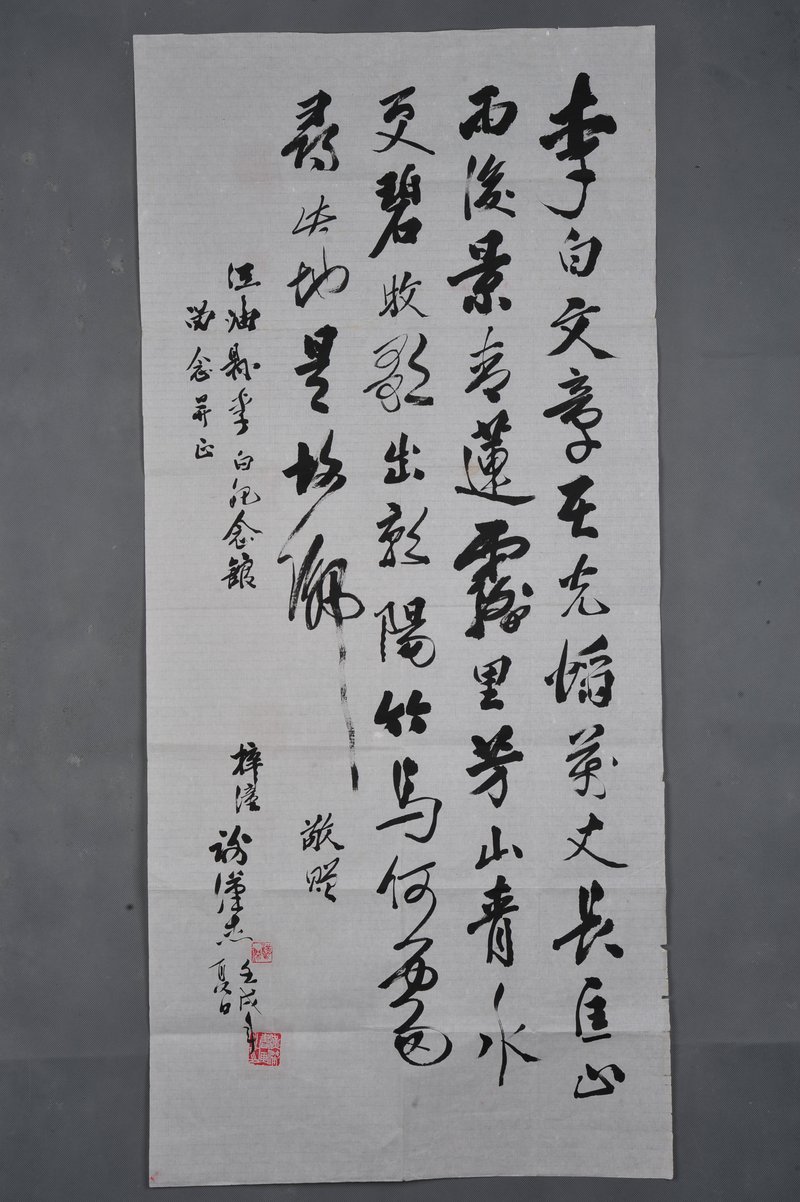 李白文章在光焰萬丈長匡山
雨後景青蓮霧里芳山青水
更碧牧歌出陽竹馬何處
尋此地是故鄉
敬贈
江油縣李白紀念館
留念并正
梓潼謝漢杰
壬戌年
夏日